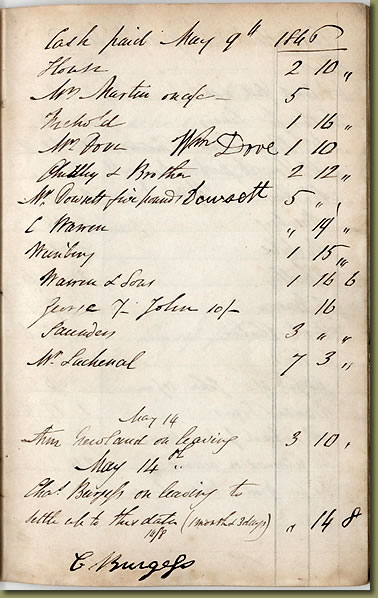 Cash paid May 9th 1846
House 2 10 "
Mrs Martin on a/c – 5
1 16 "
Mr Dove Wm Dove 1 10
& Brother 2 12 "
Mr Dowsett five pounds Dowsett 5 " "
C Warren " 19 "
1 15 "
Warren & Sons 1 16 6
George 7/- John 10/- 16
Saunders 3 " "
Mr Lachenal 7 3 "
May 14
Newland on leaving 3 10 "
May 14th
Chas Burgess on leaving to
settle a/c to this date (1 month & 3 days) " 14 8
14/8
C Burgess